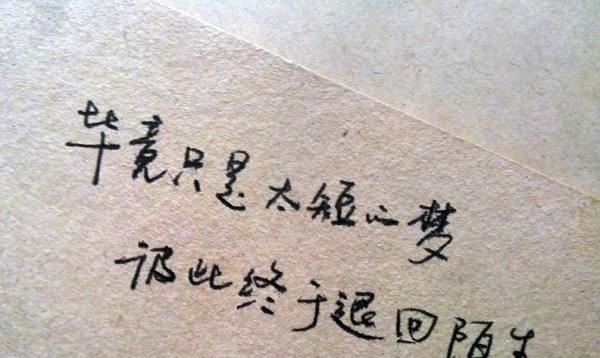 毕竟只是太短的梦
彼此终于退回陌生